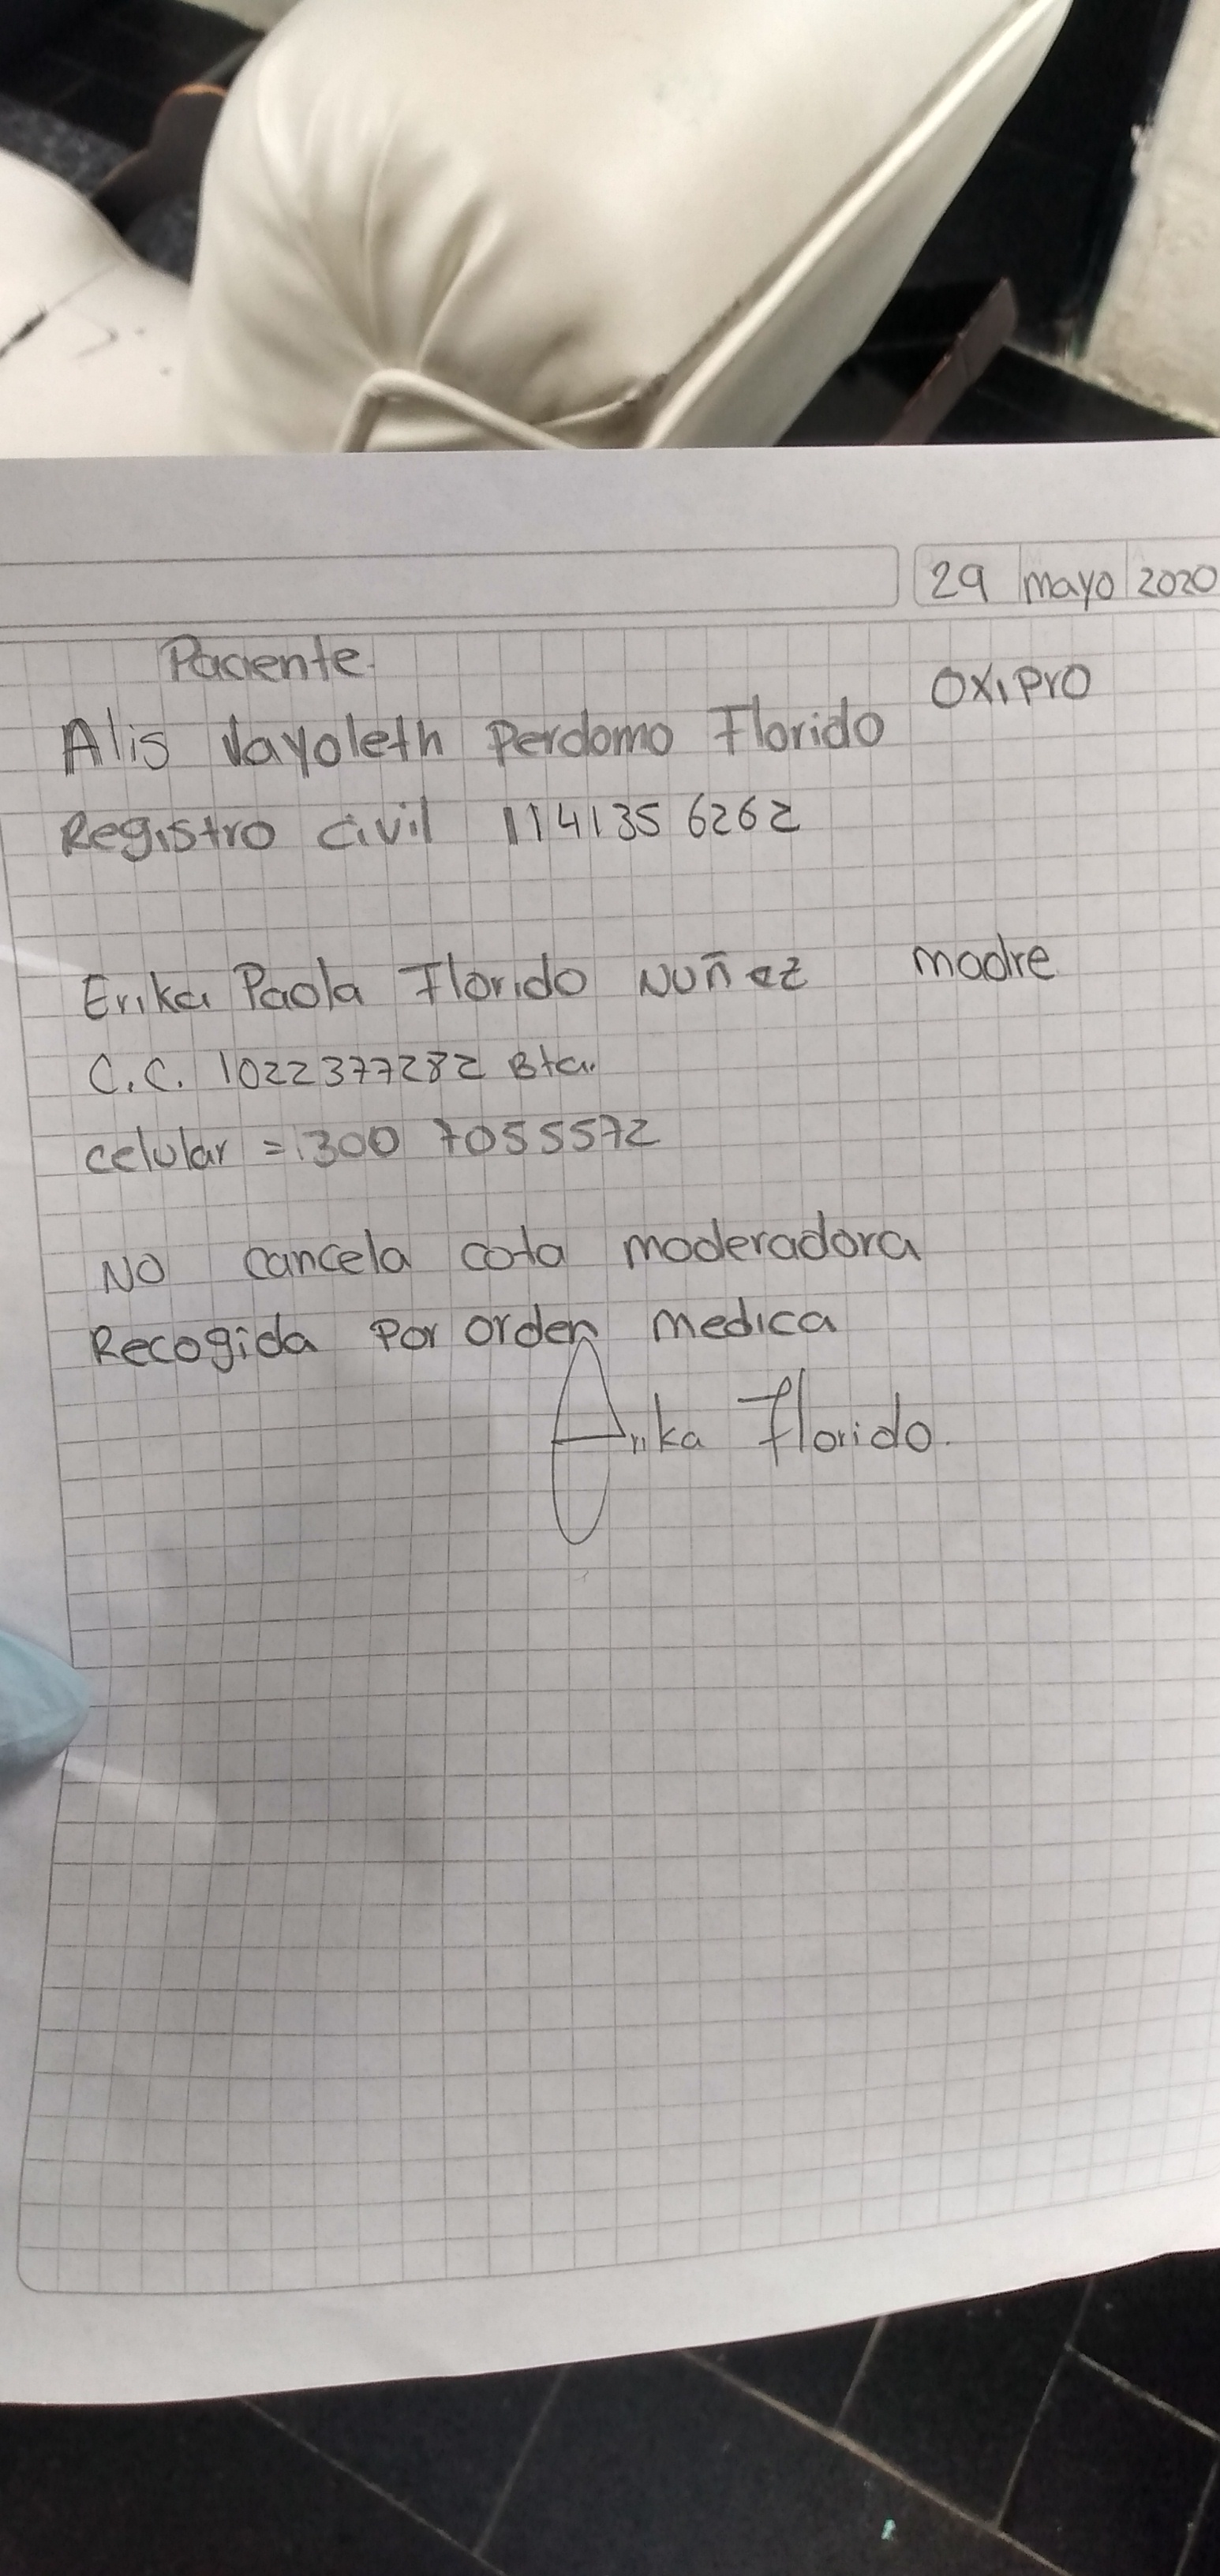 29 mayo 2020
Paciente
OXIPrO
Alis Vayoleth Perdomo Florido
Registro civil 1141356262
Erika Paola Florido Nuñez madre
C.C. 1022377282 Bta.
celular = 300 7055572
NO cancela cota moderadora
Recogida Por orden medica
Erika Florido.